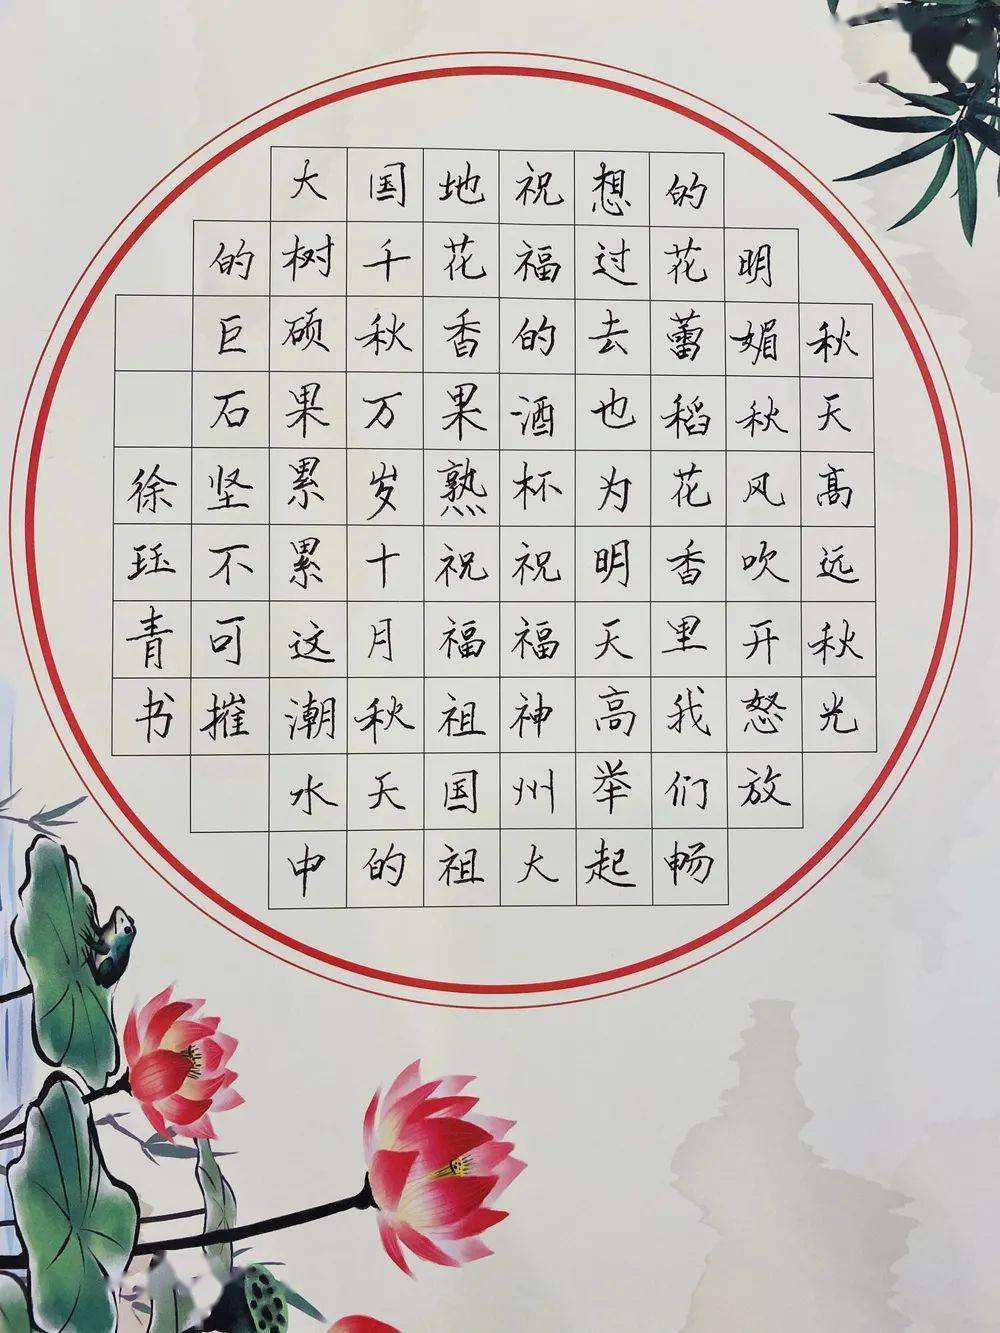 秋天高远秋光
明媚秋风吹开怒放
的花蕾稻花香里我们畅
想过去也为明天高举起
祝福的酒杯祝福神州大
地花香果熟祝福祖国祖
国千秋万岁十月秋天的
大树硕果累累这潮水中
的巨石坚不可摧
徐珏青书